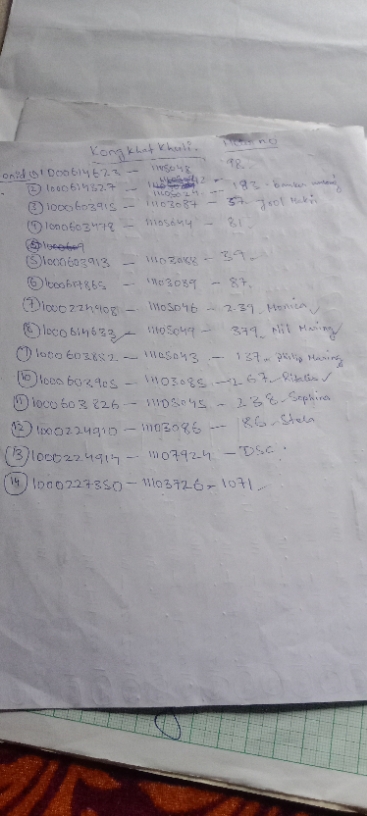 Kongkhat Khuli.
1000614623 - 11105048 - 98.
② 1000614627 - 11105024 - 182 -
③ 1000603915 - 11103087 - 37.
④ 1000603478 - 11105044 - 81
⑤ 1000603913 - 11103088 - 39
⑥ 1000607865 - 11103089 - 87.
⑦ 1000224908 - 11105046 - 239. Monica
⑧ 1000614633 - 11105049 - 379. Nil Maring
1000603852 - 11105043 - 137. Philip Maring
⑩ 1000603905 - 11103085 - 267.
⑪ 1000603826 - 11105045 - 238. Sophina
⑫ 1000224910 - 11103086 - 186. Stela
⑬ 1000224914 - 11107924 - DSC.
⑭ 1000227350 - 11103726 - 1071